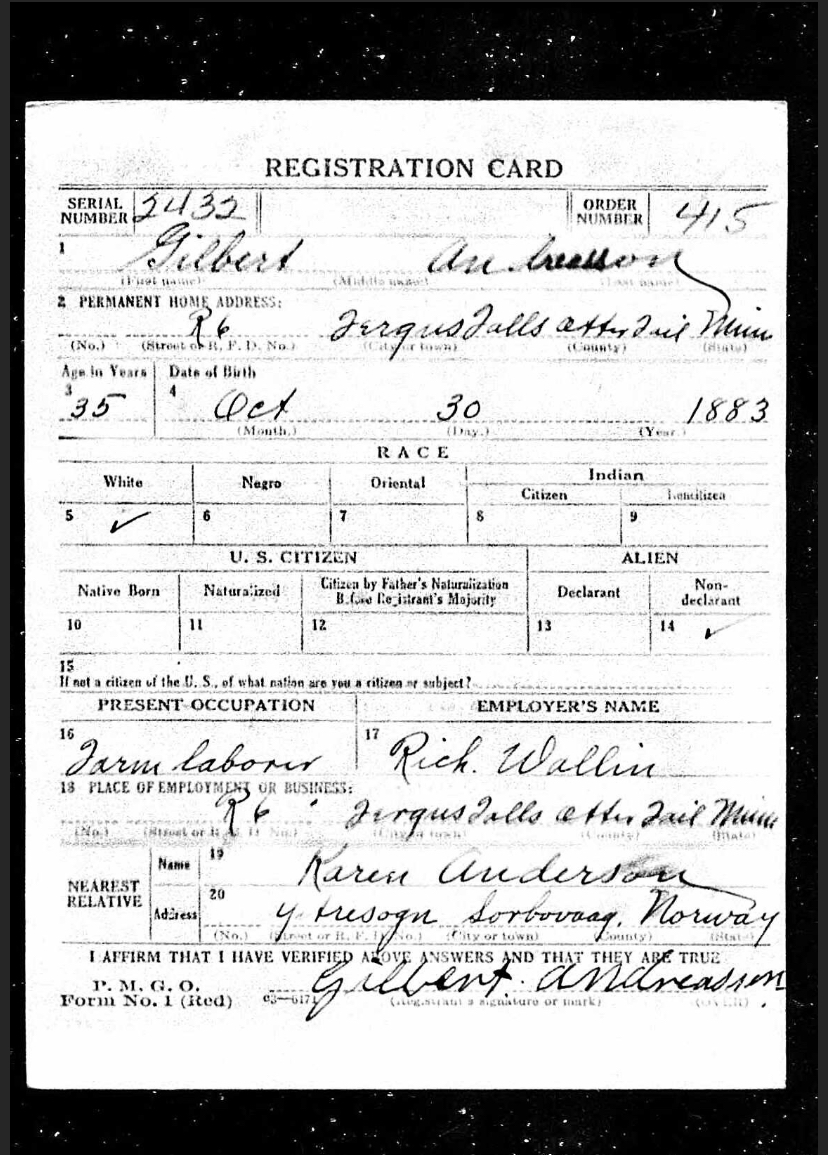 REGISTRATION CARD
SERIAL NUMBER 2432 ORDER NUMBER 415
1 Gilbert Andreasson
(First name) (Middle name) (Last name)
2 PERMANENT HOME ADDRESS:
R6 Fergus Falls Otter Tail Minn
(No.) (Street or R. F. D. No.) (City or town) (County) (State)
Age in Years Date of Birth
3 35 4 Oct 30 1883
(Month.) (Day.) (Year.)
RACE
White Negro Oriental Indian
Citizen Noncitizen
5 ✓ 6 7 8 9
U. S. CITIZEN ALIEN
Native Born Naturalized Citizen by Father's Naturalization Before Registrant's Majority Declarant Non-declarant
10 11 12 13 14 ✓
15
If not a citizen of the U. S., of what nation are you a citizen or subject?
PRESENT OCCUPATION EMPLOYER'S NAME
16 Farm laborer 17 Rich. Wallin
18 PLACE OF EMPLOYMENT OR BUSINESS:
R6 Fergus Falls Otter Tail Minn
(No.) (Street or R. F. D. No.) (City or town) (County) (State)
NEAREST RELATIVE Name 19 Karen Anderson
Address 20 Ytresogn Sorbovaag, Norway
(No.) (Street or R. F. D. No.) (City or town) (County) (State)
I AFFIRM THAT I HAVE VERIFIED ABOVE ANSWERS AND THAT THEY ARE TRUE
P. M. G. O.
Form No. 1 (Red) 03—6171 Gilbert Andreassen
(Registrant's signature or mark) (OVER)